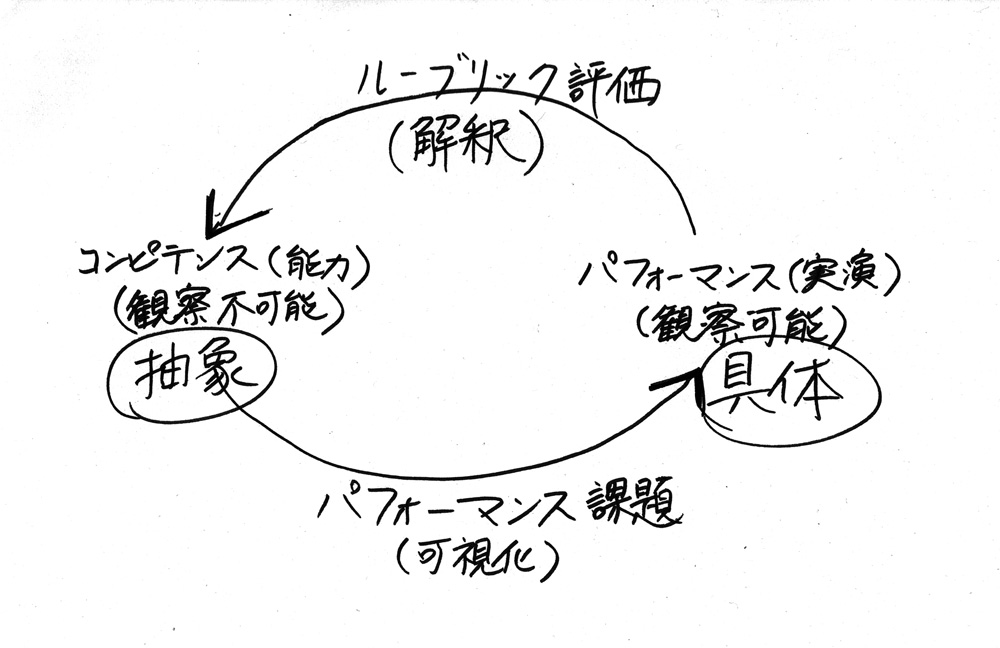 ルーブリック評価
(解釈)
コンピテンス(能力)
(観察不可能)
抽象
パフォーマンス(実演)
(観察可能)
具体
パフォーマンス課題
(可視化)